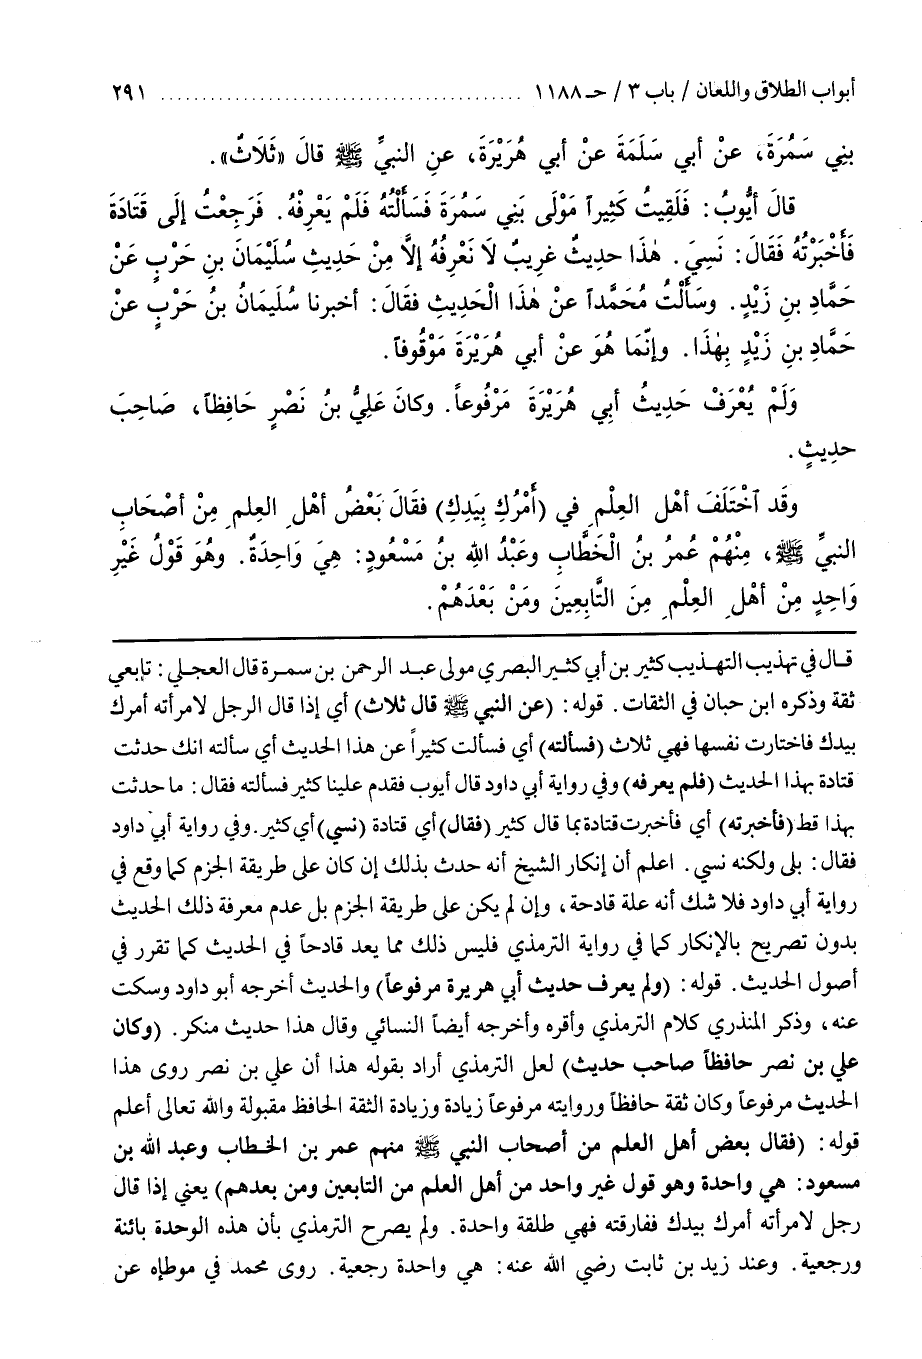 أبواب الطلاق واللعان / باب ٣ / حـ ١١٨٨ ............................................ ٢٩١
بنِي سَمُرَةَ، عنْ أبي سَلَمَةَ عنْ أبي هُرَيْرَةَ، عنِ النبيِّ ﷺ قالَ «ثَلَاثٌ».
قالَ أيُّوبُ: فَلَقِيتُ كَثِيراً مَوْلَى بَنِي سَمُرَةَ فَسَأَلْتُهُ فَلَمْ يَعْرِفْهُ. فَرَجِعْتُ إلَى قَتَادَةَ
فَأَخْبَرْتُهُ فَقَالَ: نَسِيَ. هٰذَا حديثٌ غريبٌ لَا نَعْرِفُهُ إلاَّ مِنْ حَدِيثِ سُلَيْمَانَ بنِ حَرْبٍ عَنْ
حَمَّادِ بنِ زَيْدٍ. وسَأَلْتُ مُحَمَّداً عنْ هٰذَا الْحَدِيثِ فقَالَ: أخبرنا سُلَيمَانُ بنُ حَرْبٍ عنْ
حَمَّادِ بنِ زَيْدٍ بِهٰذَا. وإنَّمَا هُوَ عنْ أبي هُرَيْرَةَ مَوْقُوفاً.
وَلَمْ يُعْرَفْ حَدِيثُ أبِي هُرَيْرَةَ مَرْفُوعاً. وكانَ عَلِيُّ بنُ نَصْرٍ حَافِظاً، صَاحِبَ
حدِيثٍ.
وقَد اخْتَلَفَ أهْلُ العِلْمِ في (أَمْرُكِ بِيَدِكِ) فقَالَ بَعْضُ أهْلِ العِلمِ مِنْ أصْحَابِ
النبيِّ ﷺ، مِنْهُمْ عُمرُ بنُ الْخَطَّابِ وعَبْدُ اللهِ بنُ مَسْعُودٍ: هِيَ وَاحِدَةٌ. وهُوَ قَوْلُ غَيْرِ
وَاحِدٍ مِنْ أهْلِ العِلْمِ مِنَ التَّابِعِينَ ومَنْ بَعْدَهُمْ.
قال في تهذيب التهذيب كثير بن أبي كثير البصري مولى عبد الرحمن بن سمرة قال العجلي: تابعي
ثقة وذكره ابن حبان في الثقات. قوله: (عن النبي ﷺ قال ثلاث) أي إذا قال الرجل لامرأته أمرك
بيدك فاختارت نفسها فهي ثلاث (فسألته) أي فسألت كثيراً عن هذا الحديث أي سألته انك حدثت
قتادة بهذا الحديث (فلم يعرفه) وفي رواية أبي داود قال أيوب فقدم علينا كثير فسألته فقال: ما حدثت
بهذا قط (فأخبرته) أي فأخبرت قتادة بما قال كثير (فقال) أي قتادة (نسي) أي كثير. وفي رواية أبي داود
فقال: بلى ولكنه نسي. اعلم أن إنكار الشيخ أنه حدث بذلك إن كان على طريقة الجزم كما وقع في
رواية أبي داود فلا شك أنه علة قادحة، وإن لم يكن على طريقة الجزم بل عدم معرفة ذلك الحديث
بدون تصريح بالإنكار كما في رواية الترمذي فليس ذلك مما يعد قادحاً في الحديث كما تقرر في
أصول الحديث. قوله: (ولم يعرف حديث أبي هريرة مرفوعاً) والحديث أخرجه أبو داود وسكت
عنه، وذكر المنذري كلام الترمذي وأقره وأخرجه أيضاً النسائي وقال هذا حديث منكر. (وكان
علي بن نصر حافظاً صاحب حديث) لعل الترمذي أراد بقوله هذا أن علي بن نصر روى هذا
الحديث مرفوعاً وكان ثقة حافظاً وروايته مرفوعاً زيادة وزيادة الثقة الحافظ مقبولة والله تعالى أعلم
قوله: (فقال بعض أهل العلم من أصحاب النبي ﷺ منهم عمر بن الخطاب وعبد الله بن
مسعود: هي واحدة وهو قول غير واحد من أهل العلم من التابعين ومن بعدهم) يعني إذا قال
رجل لامرأته أمرك بيدك ففارقته فهي طلقة واحدة. ولم يصرح الترمذي بأن هذه الوحدة بائنة
ورجعية. وعند زيد بن ثابت رضي الله عنه: هي واحدة رجعية. روى محمد في موطإه عن